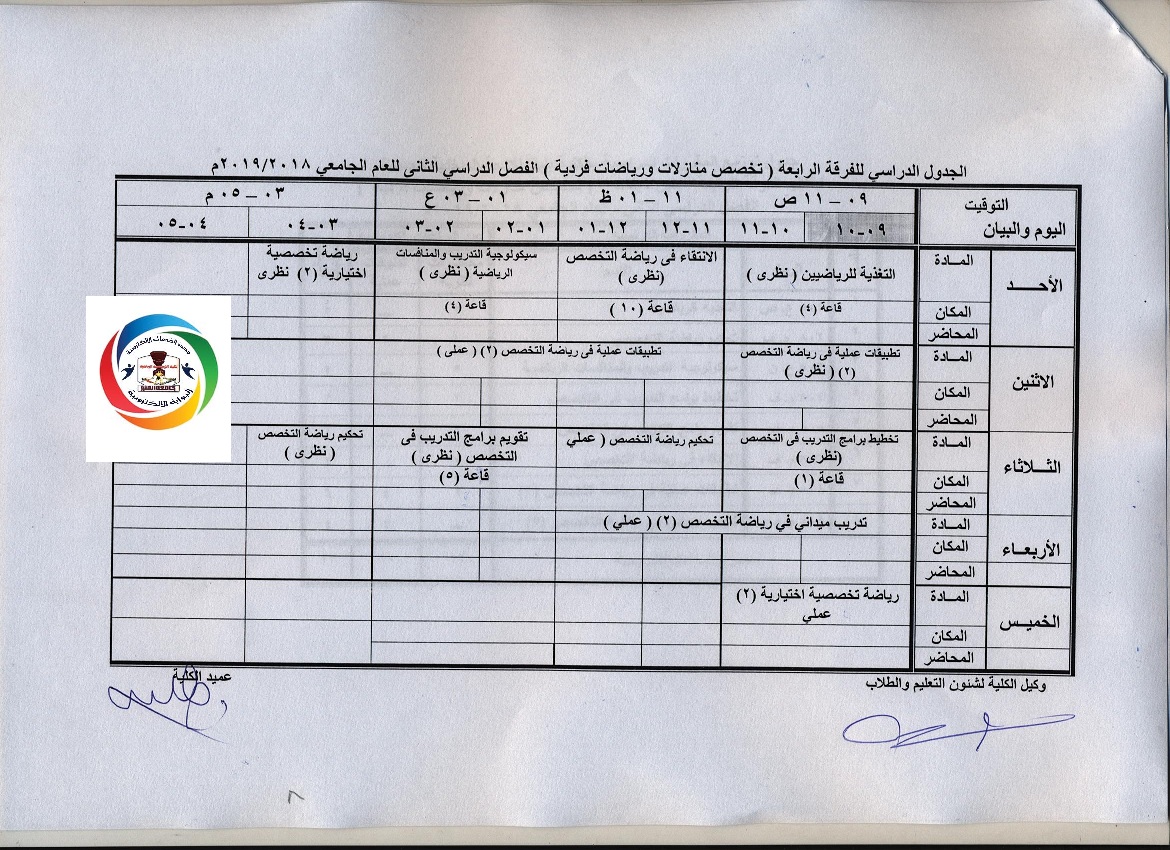 الجدول الدراسي للفرقة الرابعة ( تخصص منازلات ورياضات فردية ) الفصل الدراسي الثانى للعام الجامعي ٢٠١٩/٢٠١٨م
التوقيت
اليوم والبيان
٠٩ – ١١ ص
١١ – ٠١ ظ
٠١ – ٠٣ ع
٠٣ – ٠٥ م
٠٩-١٠
١٠-١١
١١-١٢
١٢-٠١
٠١-٠٢
٠٢-٠٣
٠٣-٠٤
٠٤-٠٥
الأحــد
المـادة
التغذية للرياضيين ( نظرى )
الانتقاء فى رياضة التخصص
(نظرى )
سيكولوجية التدريب والمنافسات
الرياضية ( نظرى )
رياضة تخصصية
اختيارية (٢) نظرى
المكان
قاعة (٤)
قاعة (١٠)
قاعة (٤)
المحاضر
الاثنين
المـادة
تطبيقات عملية فى رياضة التخصص
(٢) ( نظرى )
تطبيقات عملية فى رياضة التخصص (٢) ( عملى )
المكان
المحاضر
الثـلاثاء
المـادة
تخطيط برامج التدريب فى التخصص
(نظرى )
تحكيم رياضة التخصص ( عملي
تقويم برامج التدريب فى
التخصص ( نظرى )
تحكيم رياضة التخصص
( نظرى )
المكان
قاعة (١)
قاعة (٥)
المحاضر
الأربعـاء
المـادة
تدريب ميداني في رياضة التخصص (٢) ( عملي )
المكان
المحاضر
الخميـس
المـادة
رياضة تخصصية اختيارية (٢)
عملي
المكان
المحاضر
وكيل الكلية لشئون التعليم والطلاب
عميد الكلية
البوابة الالكترونية